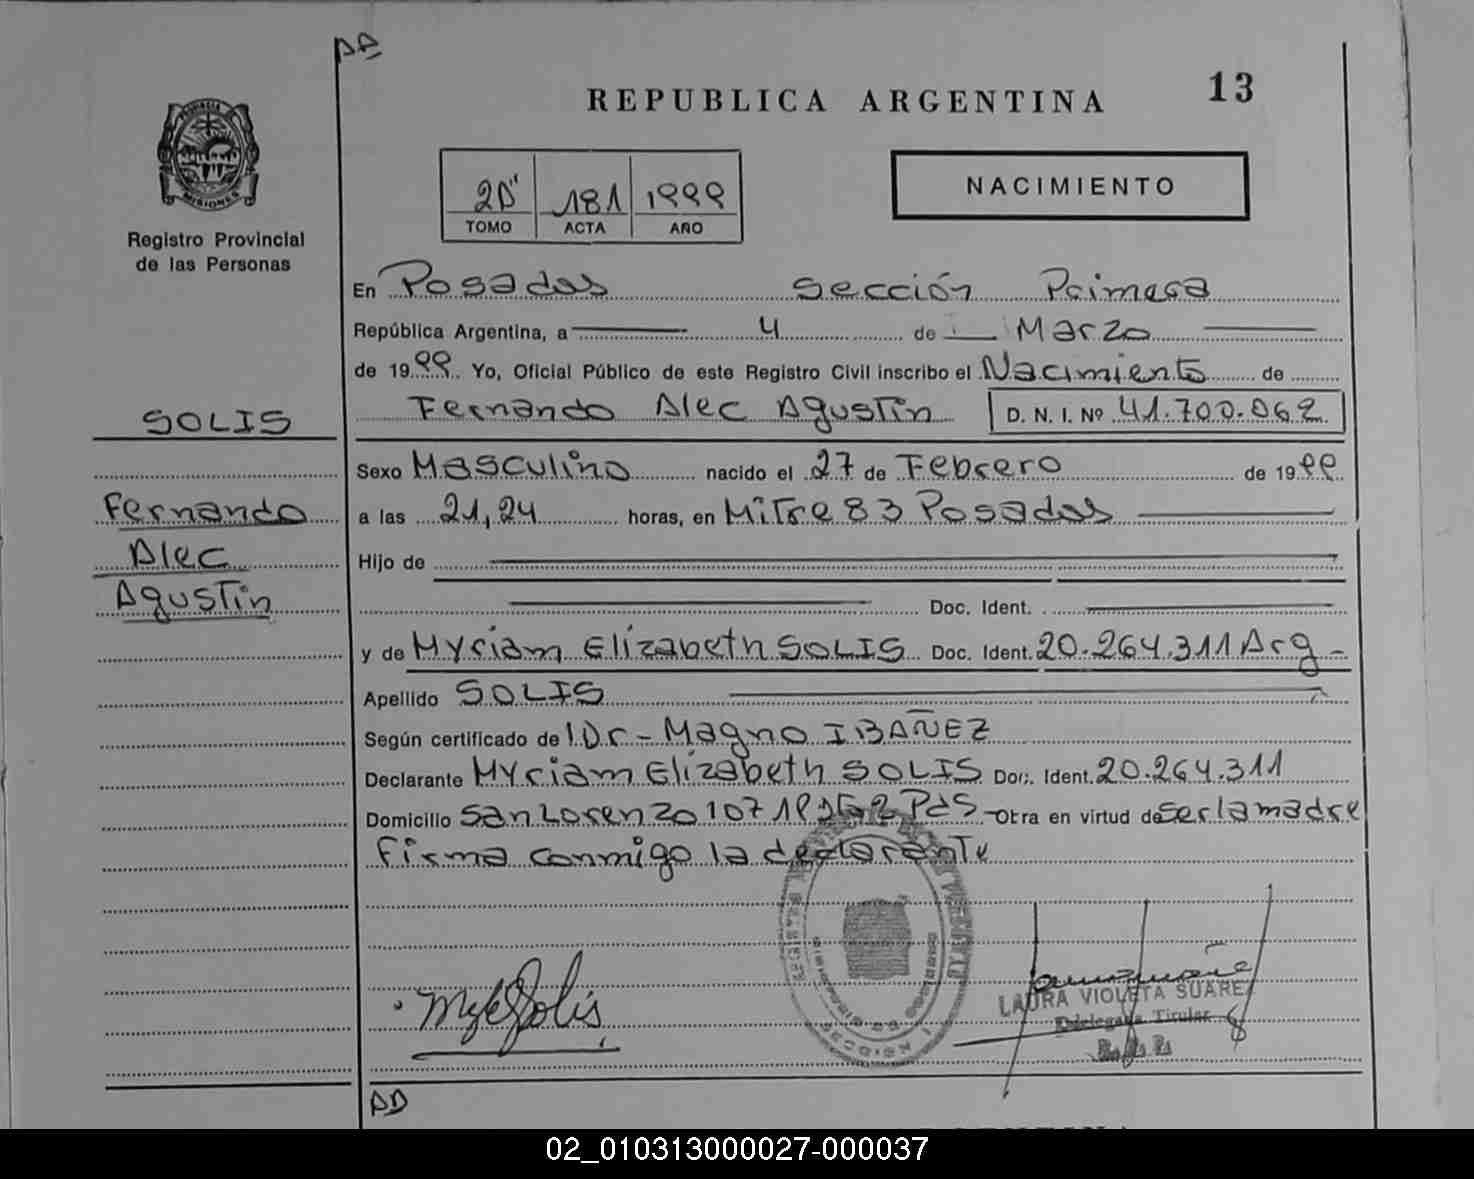 13
REPUBLICA ARGENTINA
PROVINCIA
MISIONES
1999
181
TOMO ACTA AÑO
NACIMIENTO
Registro Provincial
de las Personas
En Posadas Sección Primera
República Argentina, a 4 de Marzo
de 1999. Yo, Oficial Público de este Registro Civil inscribo el Nacimiento de
Fernando Alec Agustin D. N. I. Nº 41.700.062
SOLIS
Sexo Masculino nacido el 27 de Febrero de 1999
Fernando
a las 21,24 horas, en Mitre 83 Posadas
Alec
Hijo de
Agustin
Doc. Ident.
y de Myriam Elizabeth SOLIS Doc. Ident. 20.264.311 Arg
Apellido SOLIS
Según certificado de Dr- Magno IBAÑEZ
Declarante Myriam Elizabeth SOLIS Doc. Ident. 20.264.311
Domicilio San Lorenzo 107 Pds - Otra en virtud de ser la madre
Firma conmigo la declarante
LAURA VIOLETA SUAREZ
Titular
02_010313000027-000037